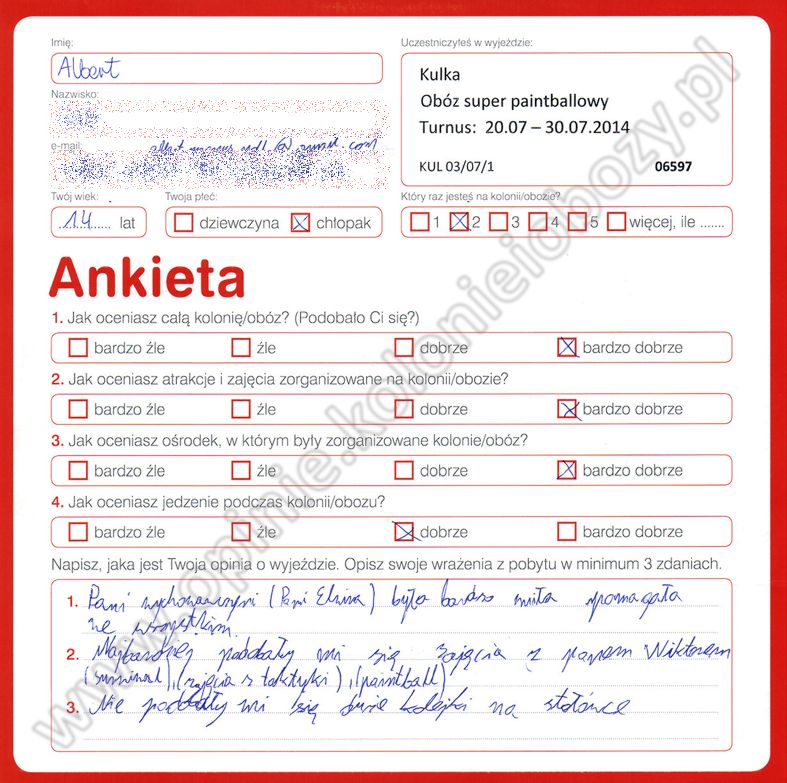 Imię:
Albert
Nazwisko:
e-mail:
Twój wiek:
14 lat
Twoja płeć:
dziewczyna chłopak
Uczestniczyłeś w wyjeździe:
Kulka
Obóz super paintballowy
Turnus: 20.07 – 30.07.2014
KUL 03/07/1 06597
Który raz jesteś na kolonii/obozie?
1 2 3 4 5 więcej, ile .......
Ankieta
1. Jak oceniasz całą kolonię/obóz? (Podobało Ci się?)
bardzo źle źle dobrze bardzo dobrze
2. Jak oceniasz atrakcje i zajęcia zorganizowane na kolonii/obozie?
bardzo źle źle dobrze bardzo dobrze
3. Jak oceniasz ośrodek, w którym były zorganizowane kolonie/obóz?
bardzo źle źle dobrze bardzo dobrze
4. Jak oceniasz jedzenie podczas kolonii/obozu?
bardzo źle źle dobrze bardzo dobrze
Napisz, jaka jest Twoja opinia o wyjeździe. Opisz swoje wrażenia z pobytu w minimum 3 zdaniach.
1. Pani wychowawczyni (Pani Elwira) była bardzo miła
we wszystkim.
2. Najbardziej podobały mi się zajęcia z panem Wiktorem
(survival), (zajęcia z taktyki), (paintball)
3. Nie podobały mi się duże kolejki na stołówce
www.opinie.kolonieiobozy.pl